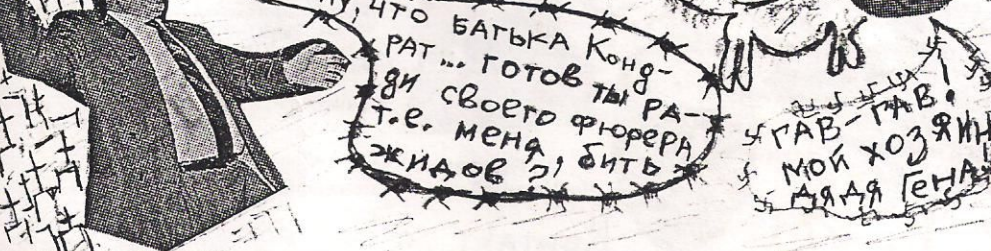 , ЧТО БАТЬКА КОНД-
РАТ... ГОТОВ ТЫ РА-
ДИ СВОЕГО ФЮРЕРА,
Т.Е. МЕНЯ, БИТЬ
ЖИДОВ?
ГАВ-ГАВ!
МОЙ ХОЗЯИН
ДЯДЯ ГЕНА!